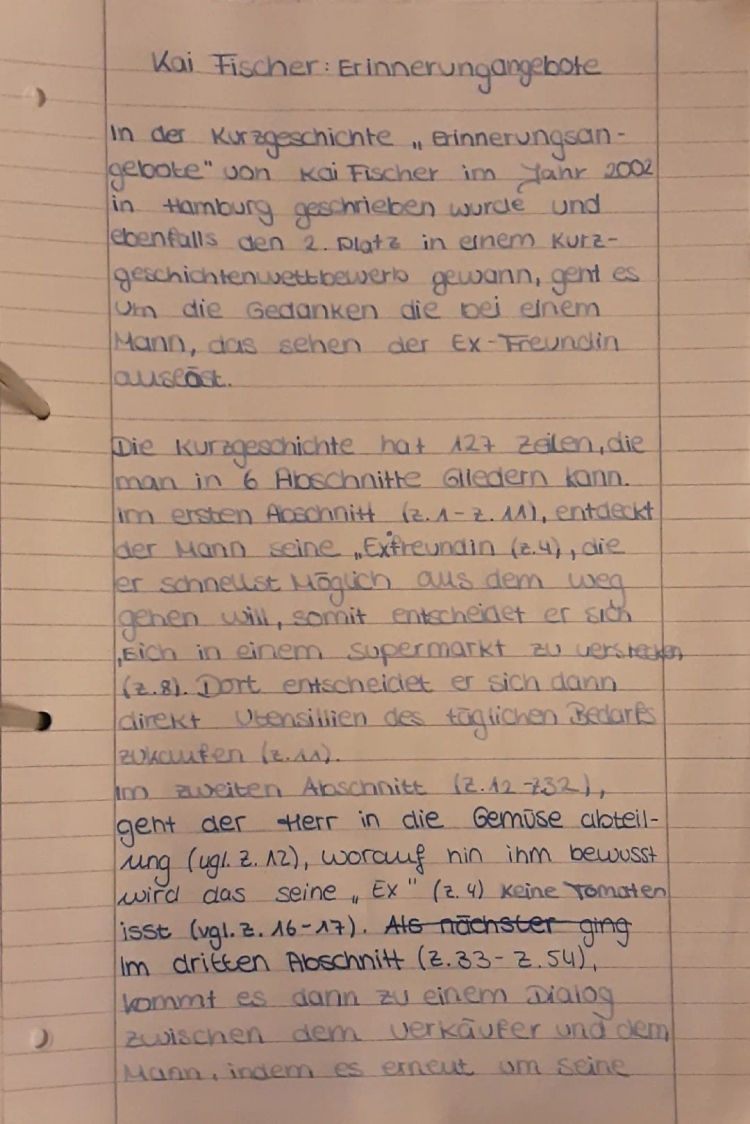 Kai Fischer: Erinnerungangebote
In der Kurzgeschichte „Erinnerungsan-
gebote" von Kai Fischer im Jahr 2002
in Hamburg geschrieben wurde und
ebenfalls den 2. Platz in einem Kurz-
geschichtenwettbewerb gewann, geht es
um die Gedanken die bei einem
Mann, das sehen der Ex-Freundin
auslöst.
Die Kurzgeschichte hat 127 Zeilen, die
man in 6 Abschnitte Gliedern kann.
im ersten Abschnitt (z.1-z.11), entdeckt
der Mann seine „Exfreundin (z.4), die
er schnellst Möglich aus dem weg
gehen will, somit entscheidet er sich
sich in einem Supermarkt zu verstecken
(z.8). Dort entscheidet er sich dann
direkt Utensillien des täglichen Bedarfs
zukaufen (z.11).
im zweiten Abschnitt (z.12-z32),
geht der Herr in die Gemüse abteil-
ung (vgl. z. 12), worauf hin ihm bewusst
wird das seine „Ex" (z.4) keine Tomaten
isst (vgl. z. 16-17). Als nächster ging
im dritten Abschnitt (z.33-z.54),
kommt es dann zu einem Dialog
zwischen dem Verkäufer und dem
Mann, indem es erneut um seine